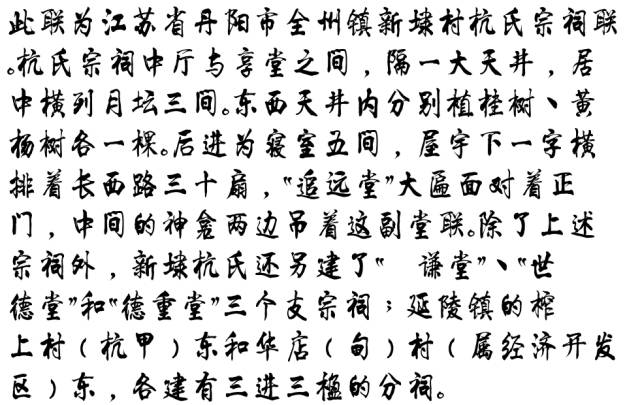 此联为江苏省丹阳市全州镇新埭村杭氏宗祠联
。杭氏宗祠中厅与享堂之间，隔一大天井，居
中横列月坛三间。东西天井内分别植桂树、黄
杨树各一棵。后进为寝室五间，屋宇下一字横
排着长西路三十扇，“追远堂”大匾面对着正
门，中间的神龛两边吊着这副堂联。除了上述
宗祠外，新埭杭氏还另建了“　谦堂”、“世
德堂”和“德重堂”三个支宗祠；延陵镇的榨
上村（杭甲）东和华店（甸）村（属经济开发
区）东，各建有三进三楹的分祠。